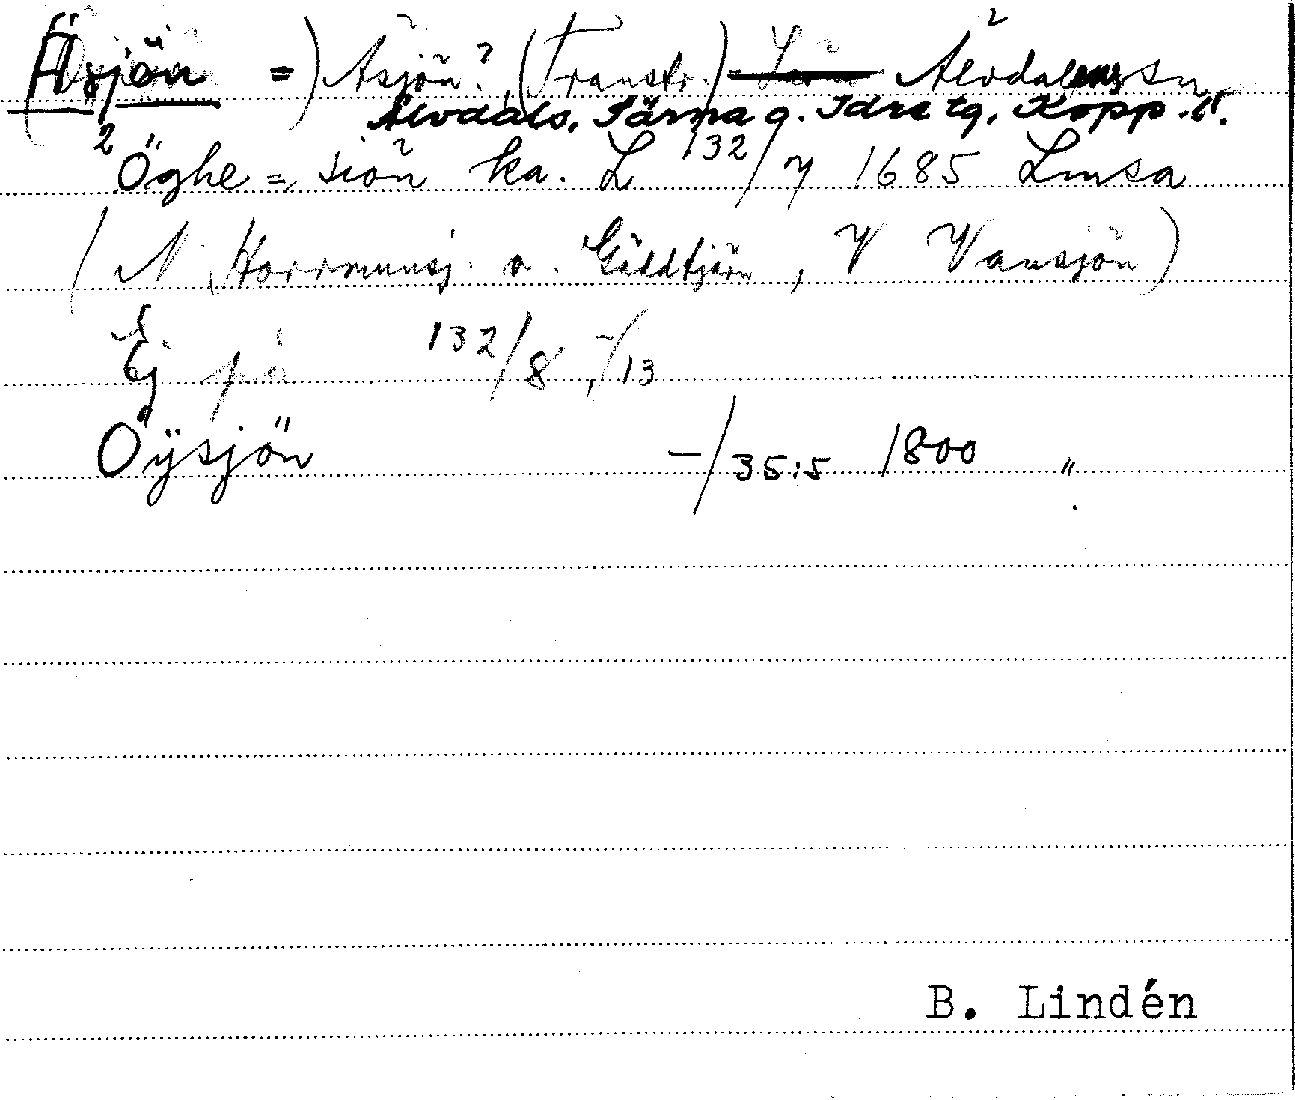 (Äsjön =) Åsjön? (Transtr.) Älvdalens sn
Älvdals, Särna o. Idre tg, Kopp. l.
Öghe = siön ka. L 132/7 1685 Lmsa
(N Horrmunsj. o. Gäddtjärn, V Vansjön)
Ej på 132/8, -/13
Öÿsjön -/35:5 1800 "
B. Lindén